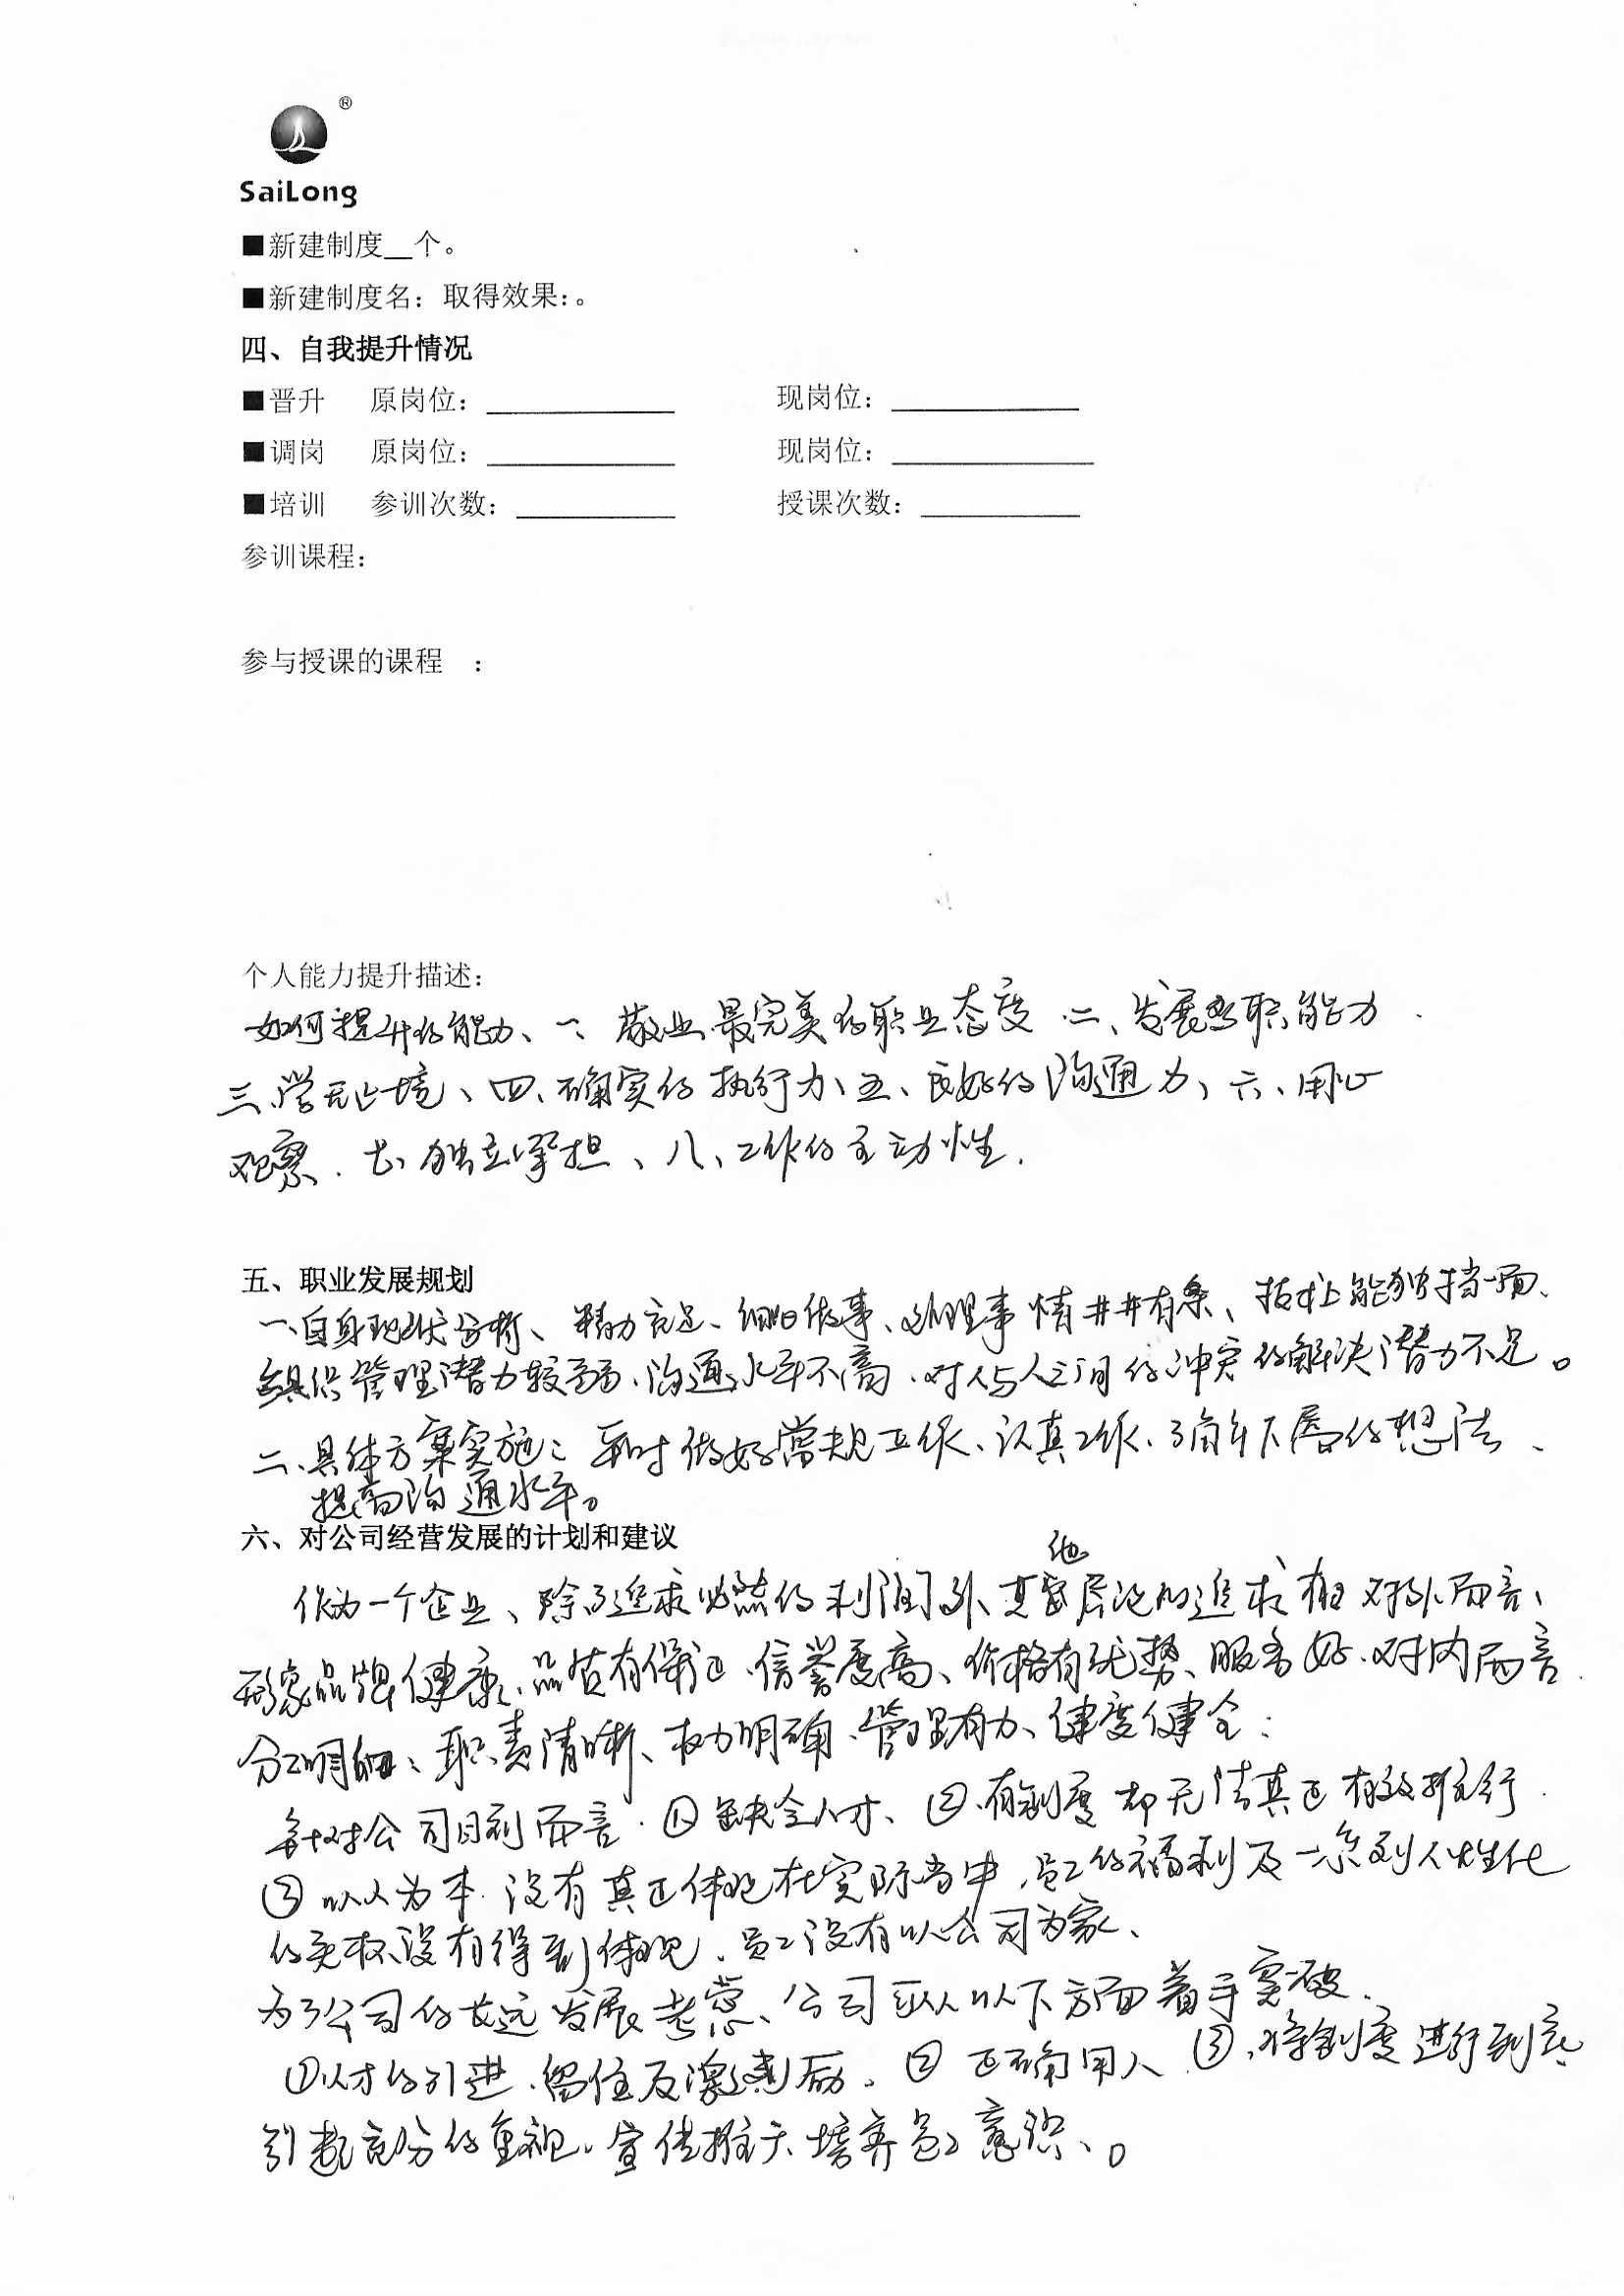 ®
SaiLong
■新建制度__个。
■新建制度名：取得效果：。
四、自我提升情况
■晋升 原岗位：____________ 现岗位：____________
■调岗 原岗位：____________ 现岗位：____________
■培训 参训次数：__________ 授课次数：__________
参训课程：
参与授课的课程 ：
个人能力提升描述：
如何提升的能力、一、敬业最完美的职业态度 二、发展老职能力
三、学无止境、四、确实的执行力、五、良好的沟通力、六、用心
观察、七、独立承担、八、工作的主动性.
五、职业发展规划
一、自身现状分析、精力充足、细心做事、处理事情井井有条、技术上能独挡一面、
组织管理潜力较弱、沟通水平不高、对人与人之间的冲突的解决潜力不足。
二、具体方案实施：平时做好常规工作、认真工作、了解下层的想法、
提高沟通水平。
六、对公司经营发展的计划和建议
作为一个企业、除了追求必然的利润外、其他层记的追求有 对外而言、
形象品牌健康、品质有保证、信誉度高、价格有优势、服务好、对内而言
分工明细、职责清晰、权力明确、管理有力、健度健全：
针对公司目前而言、①缺乏人才、②、有制度却无法真正有效推行.
③以人为本、没有真正体现在实际当中，员工的福利及一系列人性化
的关怀没有得到体现、员工没有以公司为家、
为了公司的长远发展考虑、公司可从以下方面着手突破、
①人才的引进、留住及激励、②正确用人、③、将制度进行到底
引起充分的重视、宣传推广、培养员工意识、。